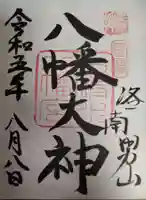 洛南男山
八幡大神
令和五年八月八日